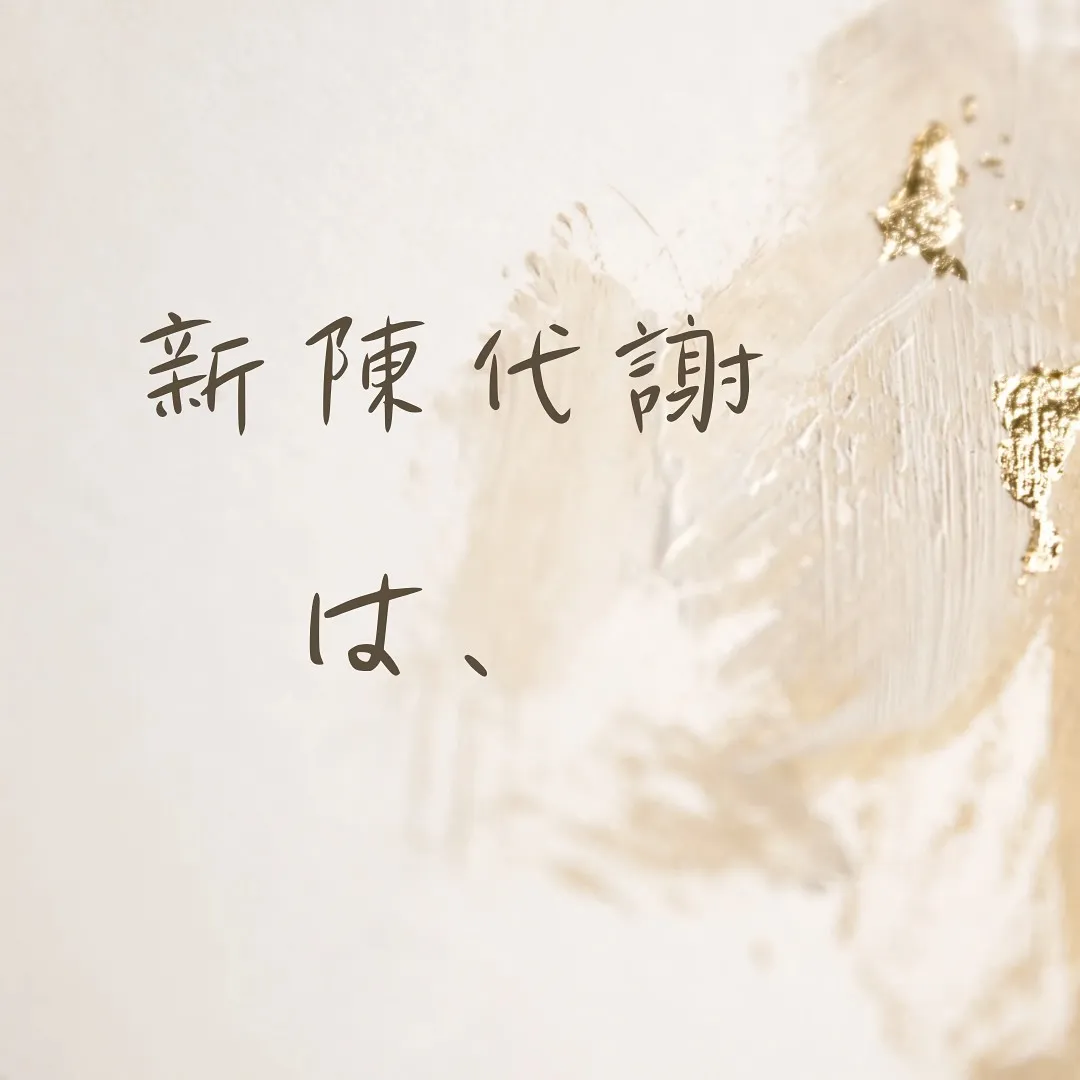 新陳代謝
は、